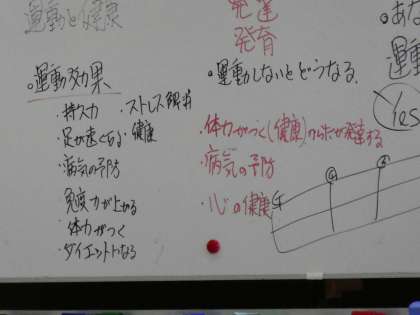 運動と健康
。運動効果
・持久力 ・ストレス解消
・足が速くなる ・健康
・病気の予防
免疫力が上がる
・体力がつく
・ダイエットになる
発達
発育
・運動しないとどうなる
・体力がつく(健康)
が発達する
・病気の予防
・心の健康
・あな
運動
Yes